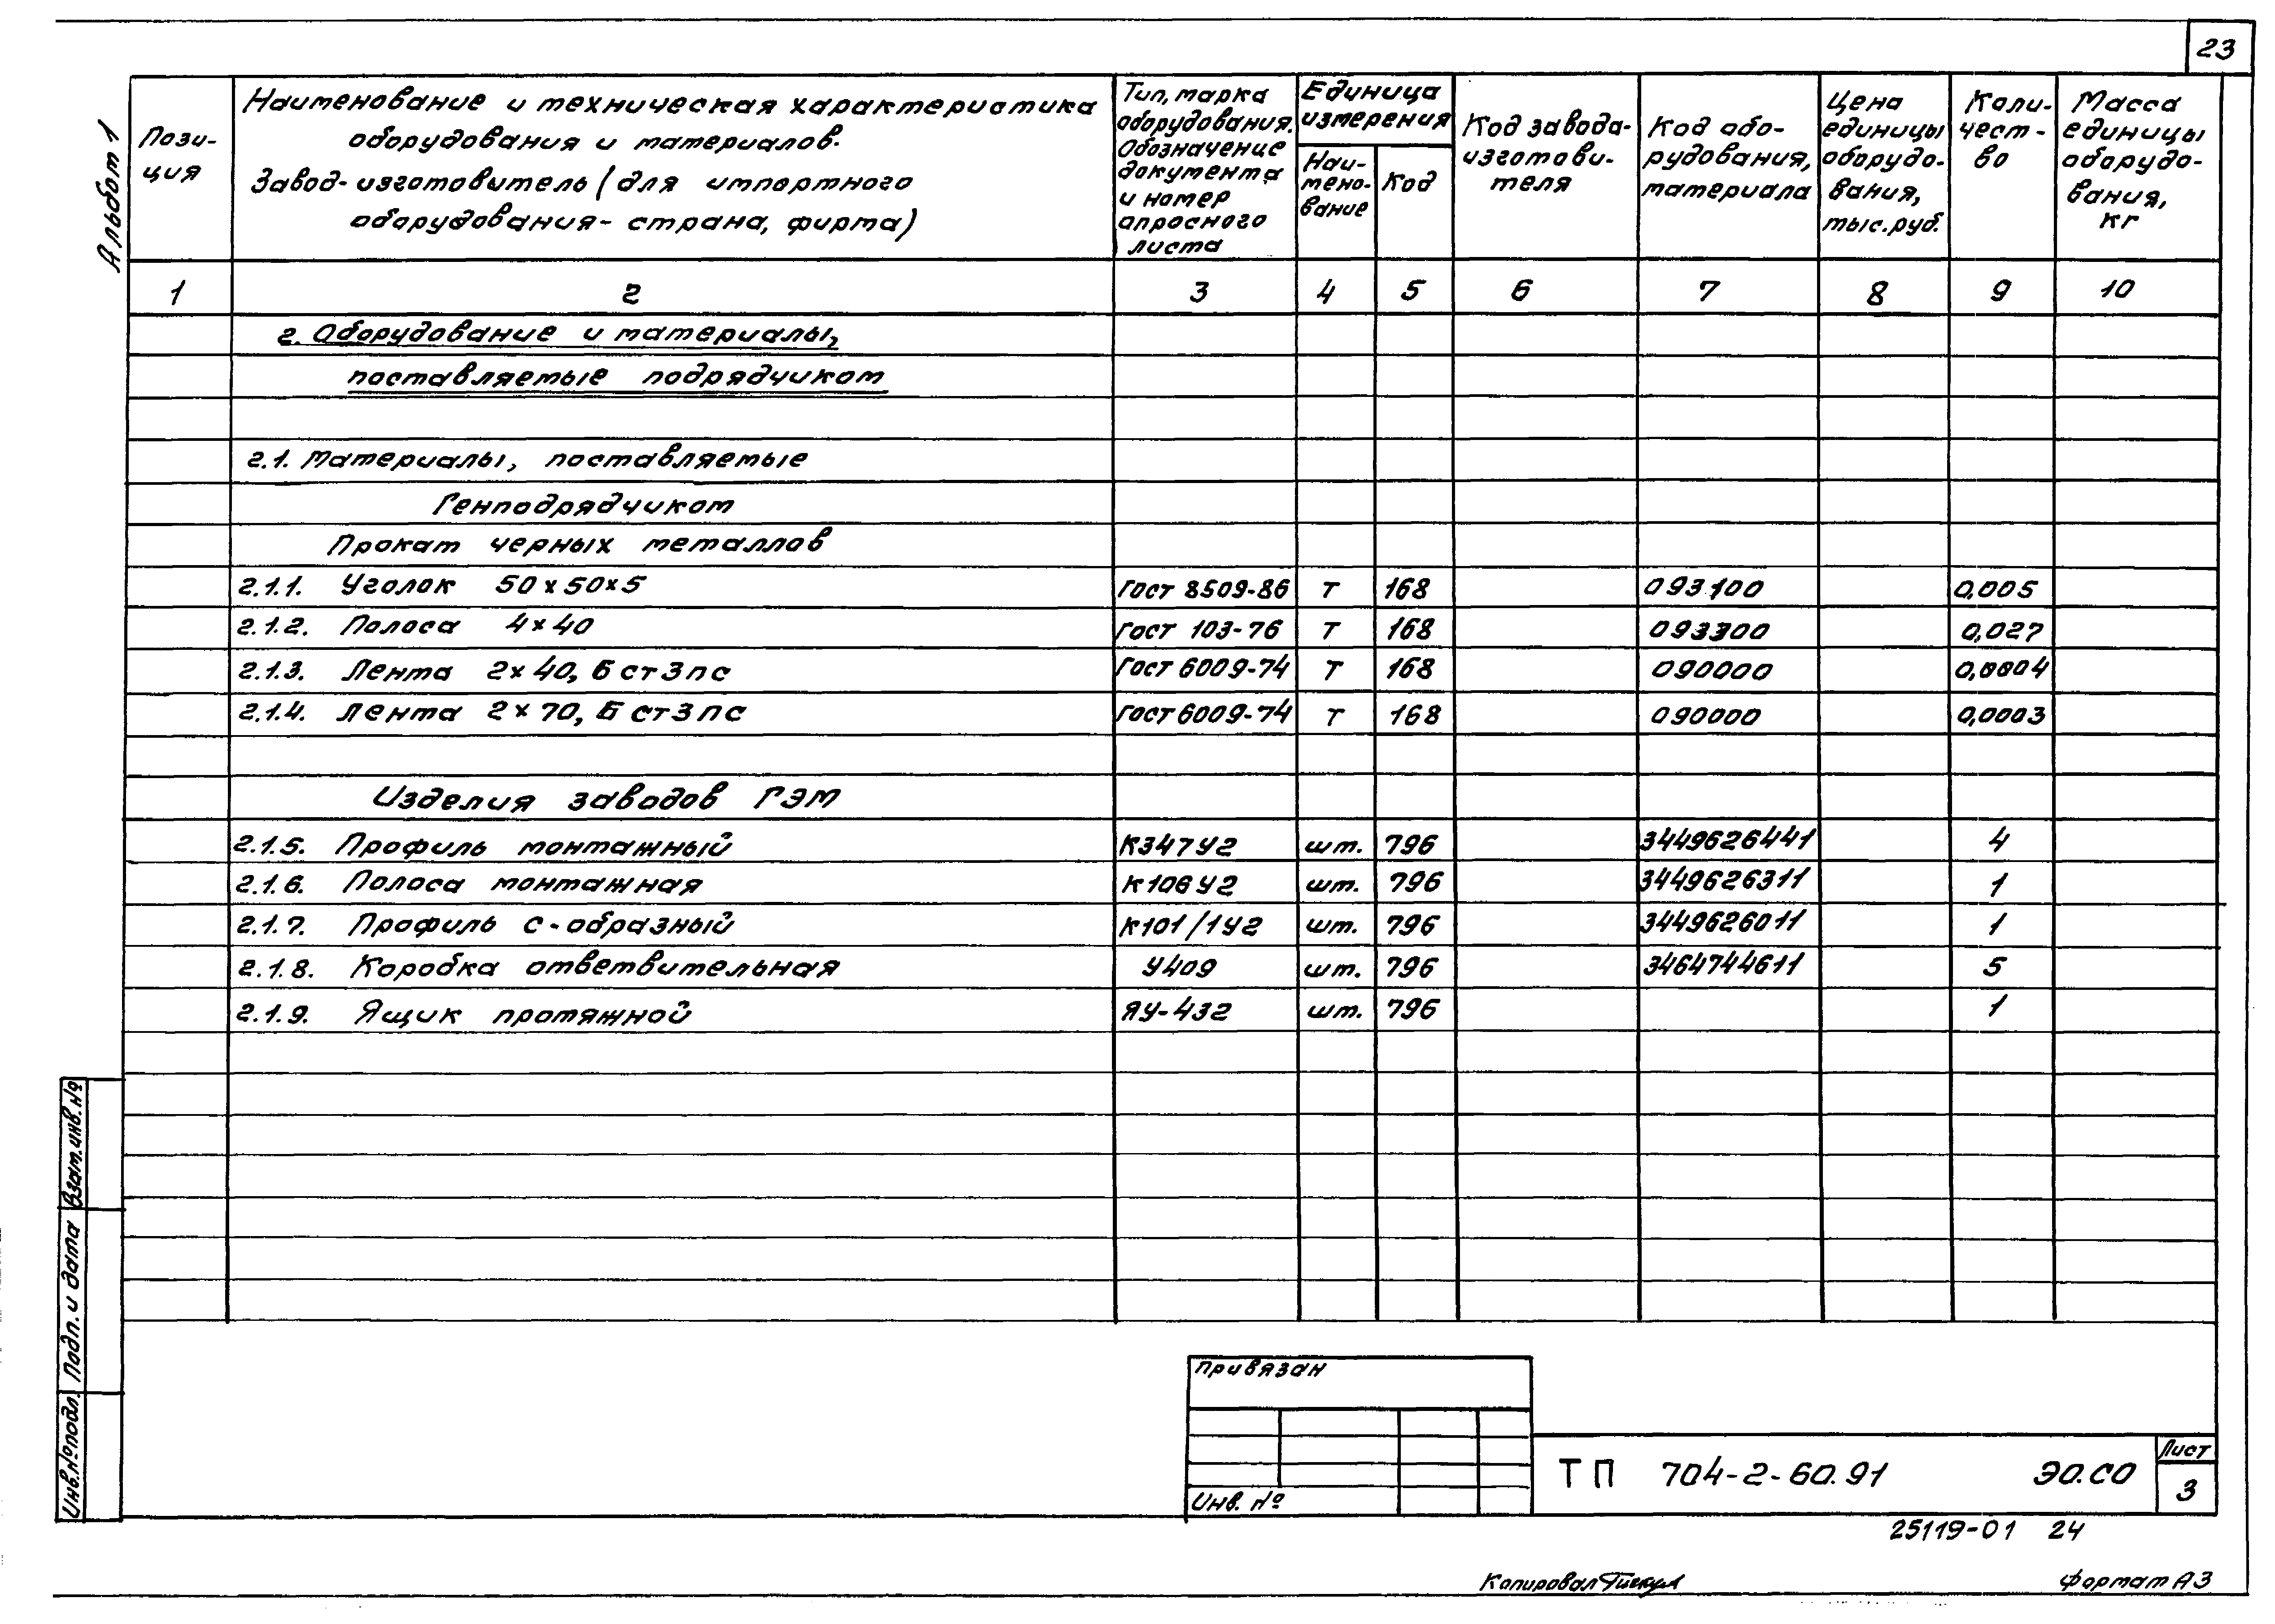 23
Альбом 1
Пози-
ция
Наименование и техническая характеристика
оборудования и материалов.
Завод-изготовитель (для импортного
оборудования - страна, фирма)
Тип, марка
оборудования.
Обозначение
документа
и номер
опросного
листа
Единица
измерения
Наи-
мено-
вание
Код
Код завода-
изготови-
теля
Код обо-
рудования,
материала
Цена
единицы
оборудо-
вания,
тыс. руб.
Коли-
чест-
во
Масса
единицы
оборудо-
вания,
кг
1 2 3 4 5 6 7 8 9 10
2. Оборудование и материалы,
поставляемые подрядчиком
2.1. Материалы, поставляемые
Генподрядчиком
Прокат черных металлов
2.1.1. Уголок 50х50х5 Гост 8509-86 т 168 093100 0,005
2.1.2. Полоса 4х40 Гост 103-76 т 168 093300 0,027
2.1.3. Лента 2х40, Б ст 3 пс Гост 6009-74 т 168 090000 0,0004
2.1.4. Лента 2х70, Б ст 3 пс Гост 6009-74 т 168 090000 0,0003
Изделия заводов ГЭМ
2.1.5. Профиль монтажный К347У2 шт. 796 3449626441 4
2.1.6. Полоса монтажная К106У2 шт. 796 3449626311 1
2.1.7. Профиль С-образный К101/1У2 шт. 796 3449626011 1
2.1.8. Коробка ответвительная У409 шт. 796 3464744611 5
2.1.9. Ящик протяжной ЯУ-432 шт. 796 1
Взам. инв. №
Подп. и дата
Инв. № подл.
Привязан
Инв. №
ТП 704-2-60.91 ЭО.СО
Лист
3
25119-01 24
Копировал
Формат А3